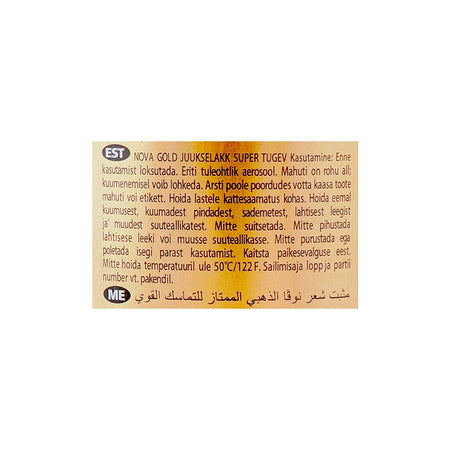 EST NOVA GOLD JUUKSELAKK SUPER TUGEV Kasutamine: Enne
kasutamist loksutada. Eriti tuleohtlik aerosool. Mahuti on rohu all;
kuumenemisel voib lohkeda. Arsti poole poordudes votta kaasa toote
mahuti voi etikett. Hoida lastele kattesaamatus kohas. Hoida eemal
kuumusest, kuumadest pindadest, sademetest, lahtisest leegist
ja' muudest suuteallikatest. Mitte suitsetada. Mitte pihustada
lahtisesse leeki voi muusse suuteallikasse. Mitte purustada ega
poletada isegi parast kasutamist. Kaitsta paikesevalguse eest.
Mitte hoida temperatuuril ule 50°C/122 F. Sailimisaja lopp ja partii
number vt. pakendil.
ME مثبت شعر نوڤا الذهبي الممتاز للتماسك القوي